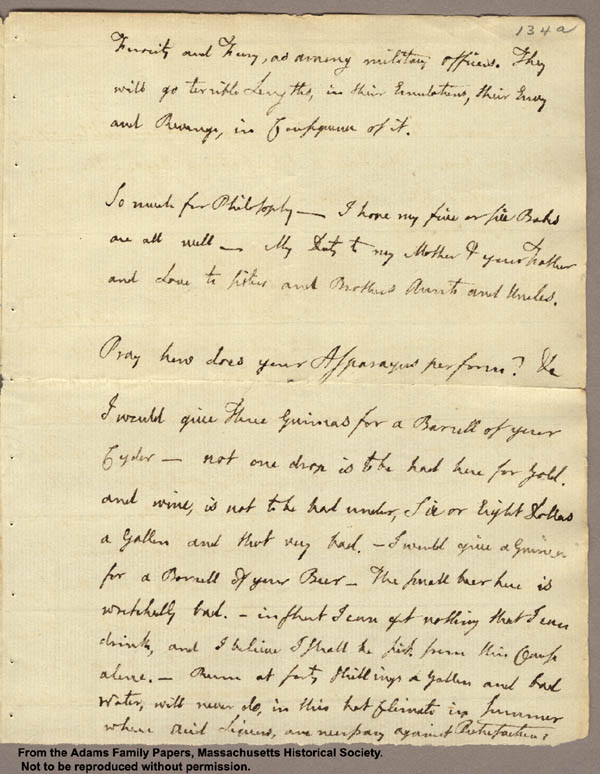 134a
Ferocity and Fury, as among military officers. They
will go terrible Lengths, in their Emulations, their Envy
and Revenge, in Consequence of it.
So much for Philosophy — I hope my five or six Babes
are all well — My Duty to my Mother & your Father
and Love to sisters and Brothers Aunts and Uncles.
Pray how does your Asparagus perform? &c
I would give Three Guineas for a Barrell of your
Cyder — not one drop is to be had here for Gold.
and wine, is not to be had under, Six or Eight Dollars
a Gallon and that very bad. — I would give a Guinea
for a Barrell of your Beer — The small beer here is
wretchedly bad. — in short I can get nothing that I can
drink, and I believe I shall be sick from this Cause
alone. — Rum at forty shillings a Gallon and bad
Water, will never do, in this hot Climate in Summer
where Acid Liquors, are necessary against Putrefaction.
From the Adams Family Papers, Massachusetts Historical Society.
Not to be reproduced without permission.